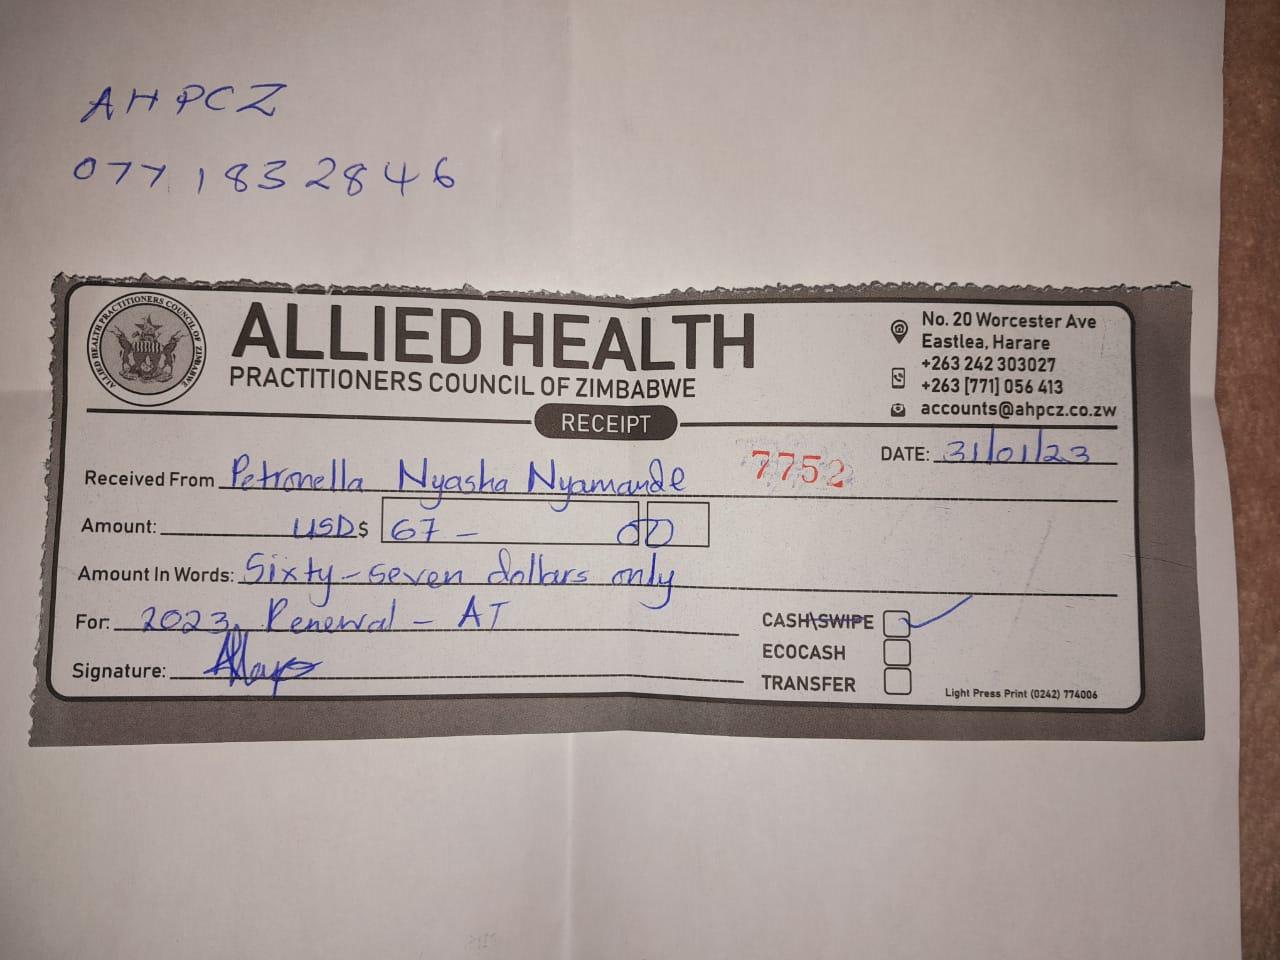 AHPCZ
077 183 2846
ALLIED HEALTH PRACTITIONERS COUNCIL OF ZIMBABWE
ALLIED HEALTH
PRACTITIONERS COUNCIL OF ZIMBABWE
No. 20 Worcester Ave
Eastlea, Harare
+263 242 303027
+263 [771] 056 413
accounts@ahpcz.co.zw
RECEIPT
7752
DATE: 31/01/23
Received From Petronella Nyasha Nyamande
Amount: USD$ 67 - 00
Amount In Words: Sixty-seven dollars only
For: 2023 Renewal - AT
CASH\SWIPE
ECOCASH
TRANSFER
Signature:
Light Press Print (0242) 774006